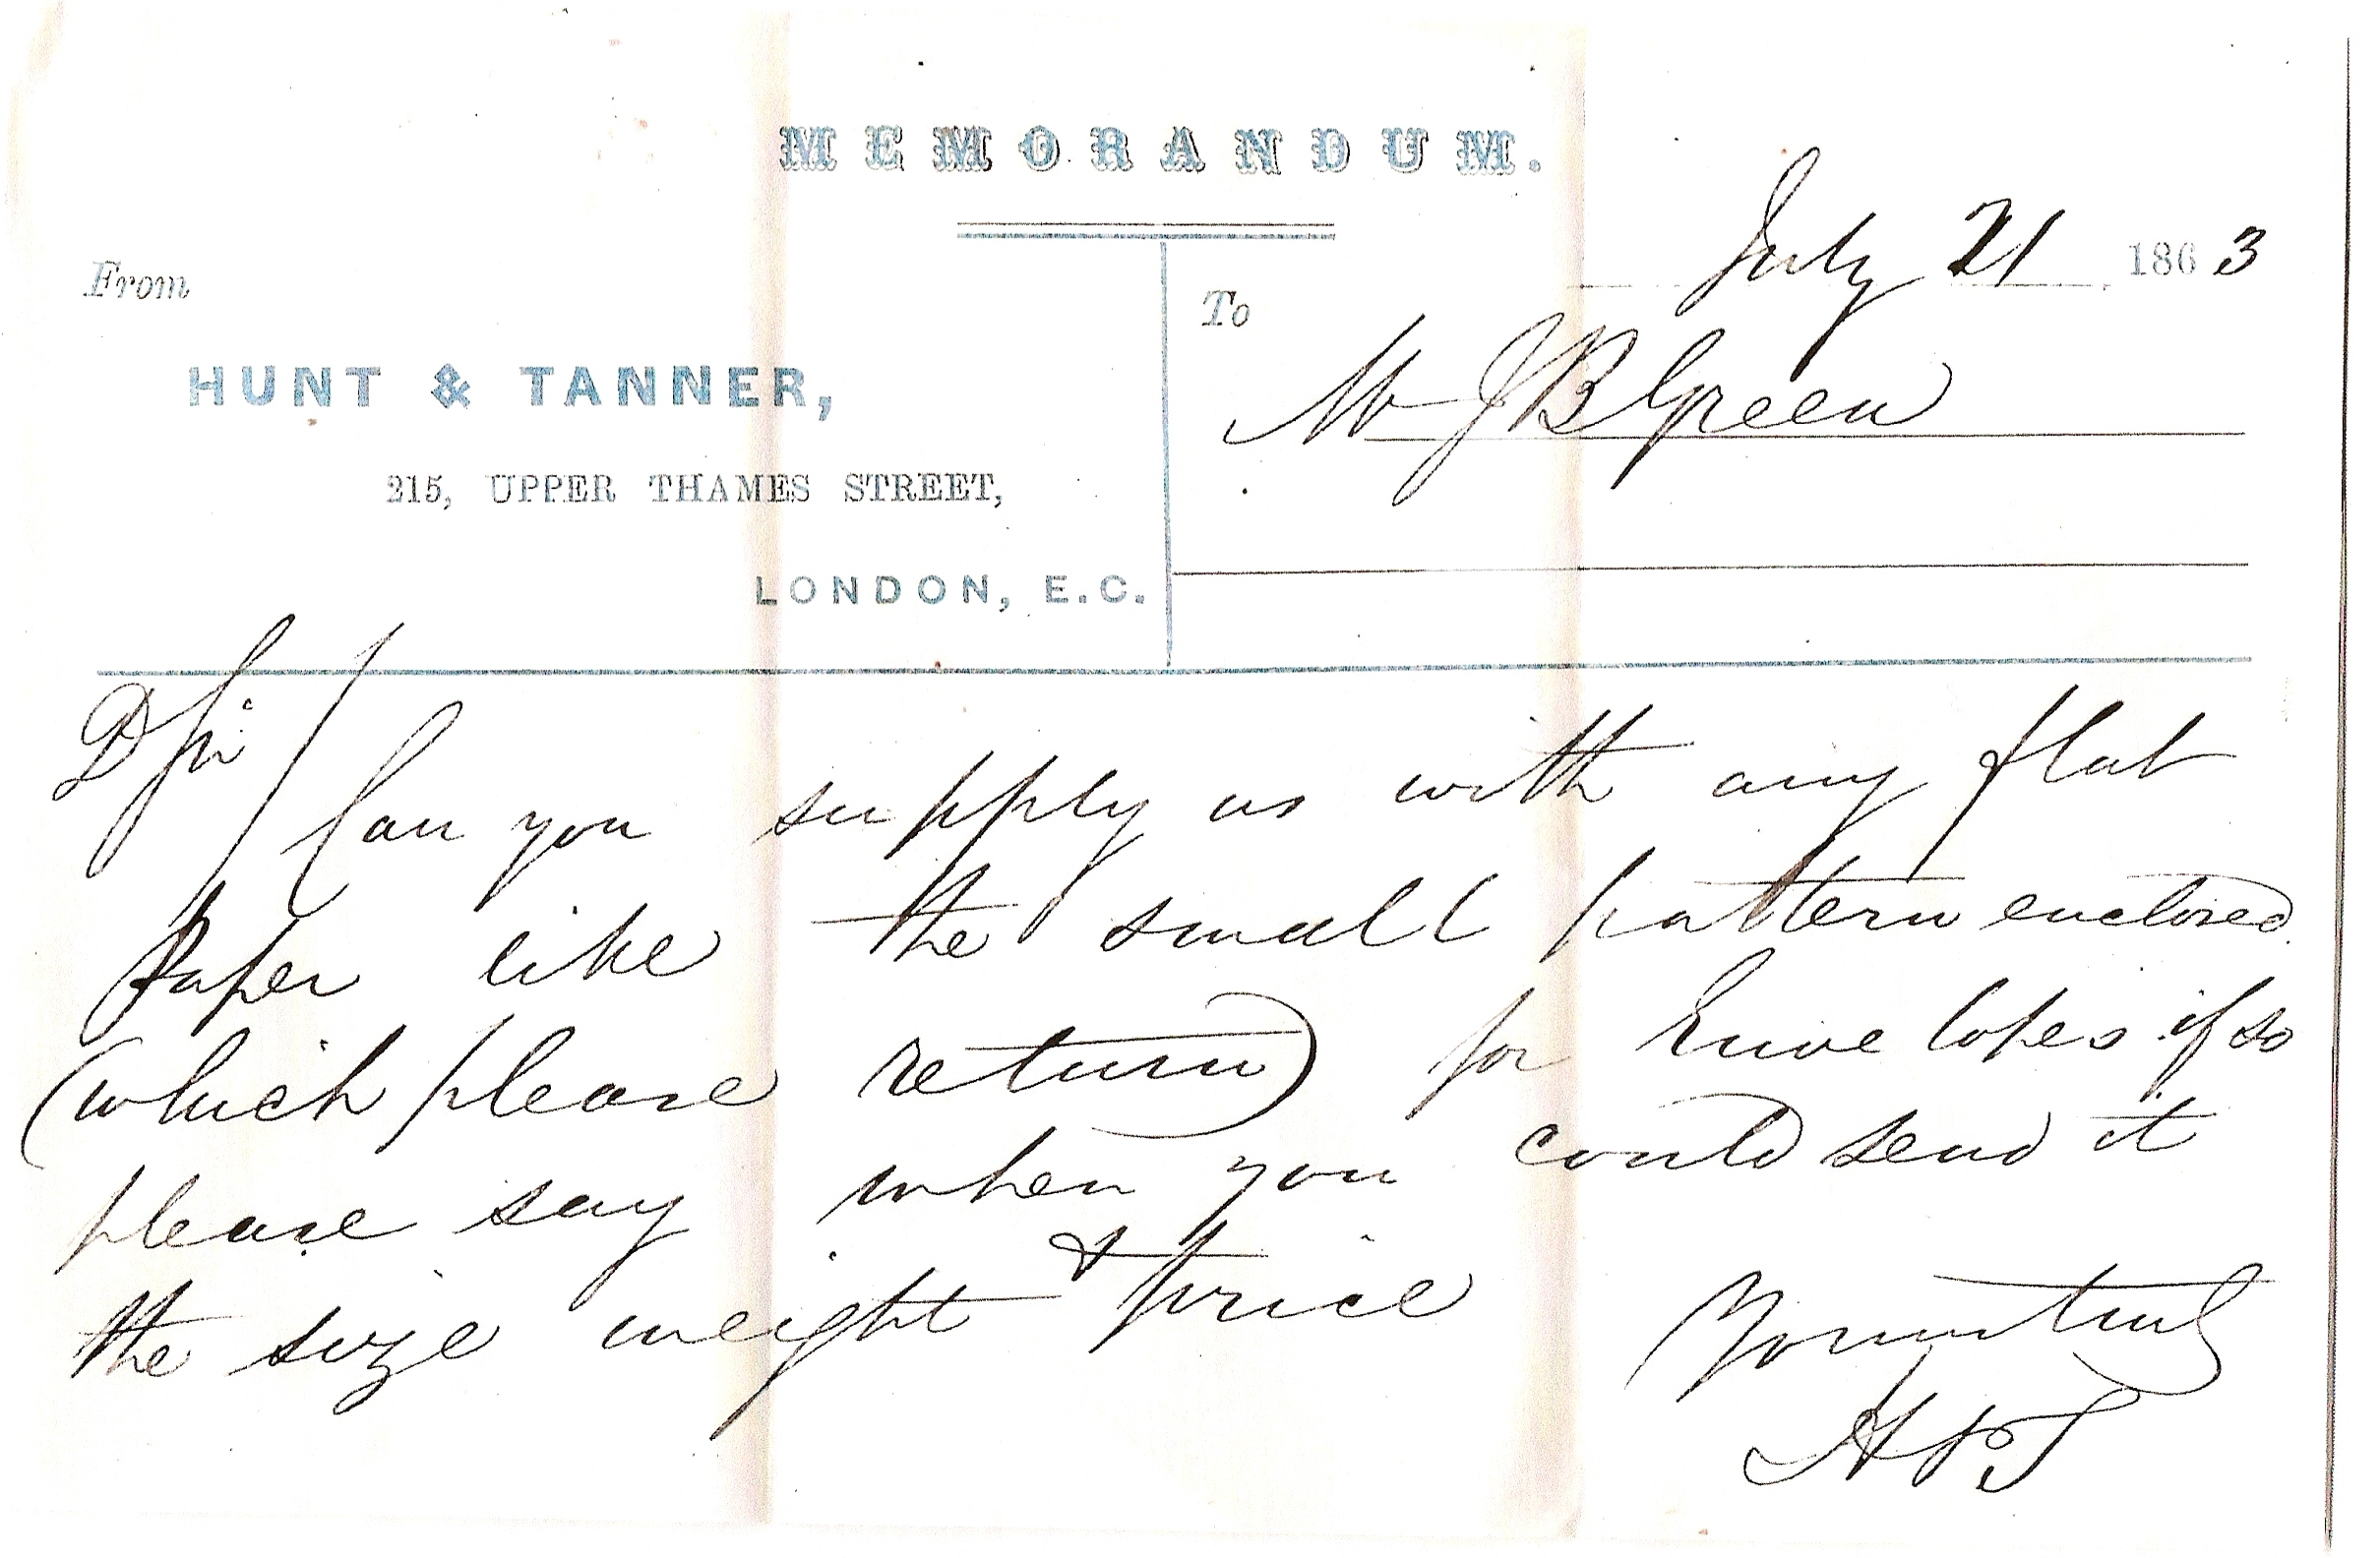 MEMORANDUM.
July 21 1863
From
To
HUNT & TANNER,
Mr J B Green
215, UPPER THAMES STREET,
LONDON, E.C.
D Sir/
Can you supply us with any flat
Paper like the small pattern enclosed
(which please return) for Envelopes if so
please say when you could send it
the size weight & price
Yours truly
H & T